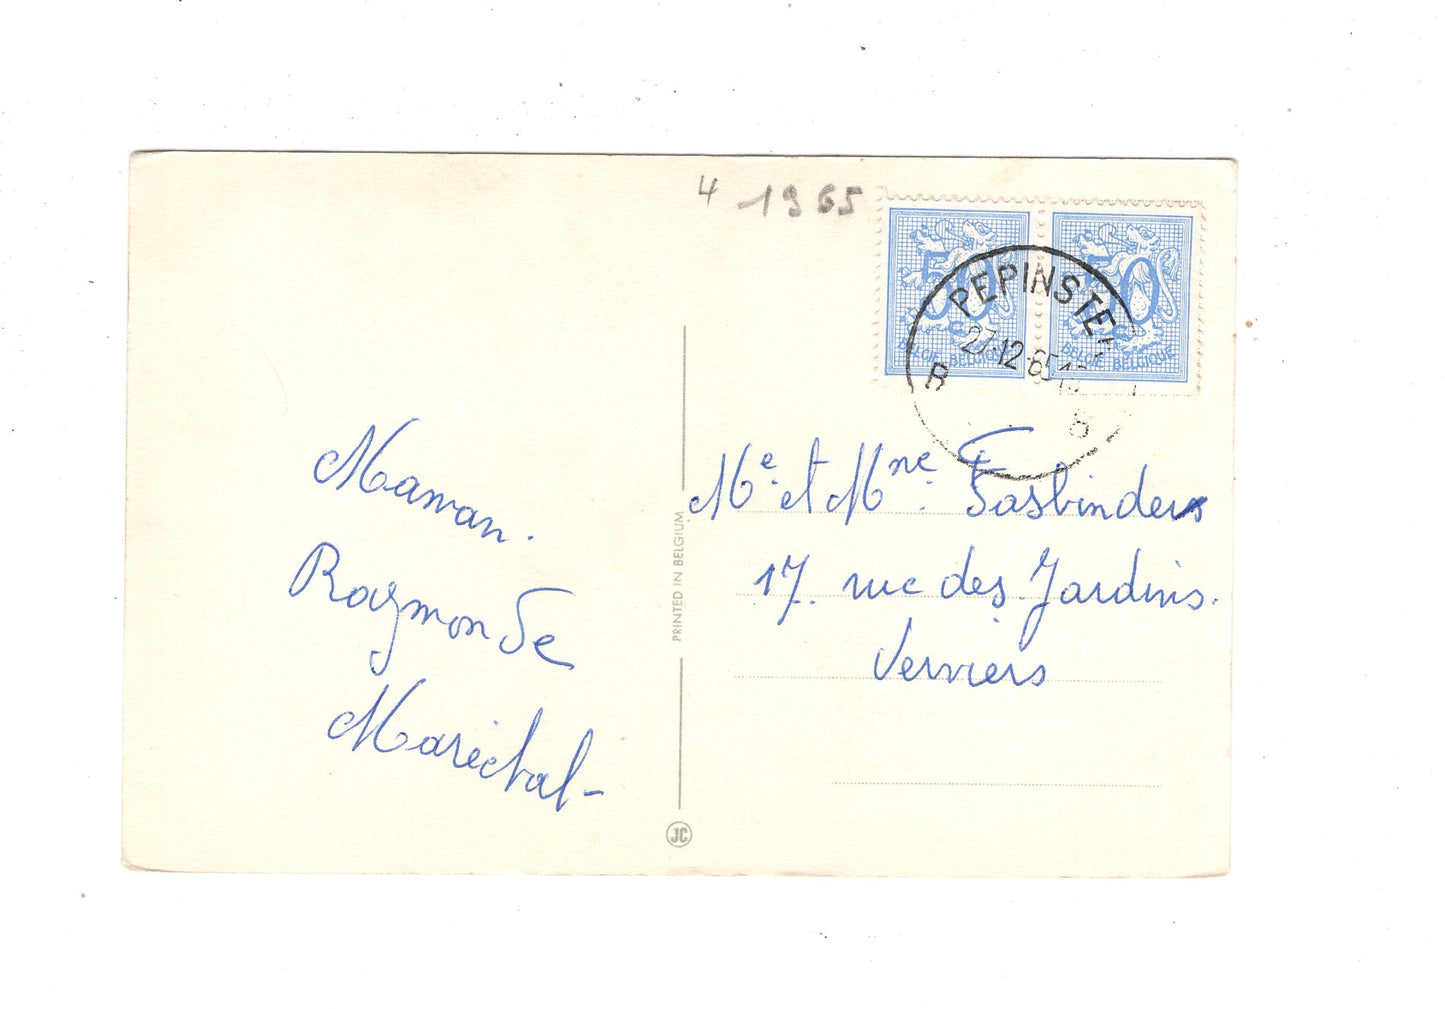 4 1965
50
c
BELGIË-BELGIQUE
50
c
BELGIË BELGIQUE
PEPINSTER
27-12-65
B
B
Maman.
Raymonde
Maréchal-
PRINTED IN BELGIUM
JC
Me. et Mme. Fasbinders
17. rue des Jardins.
Verviers